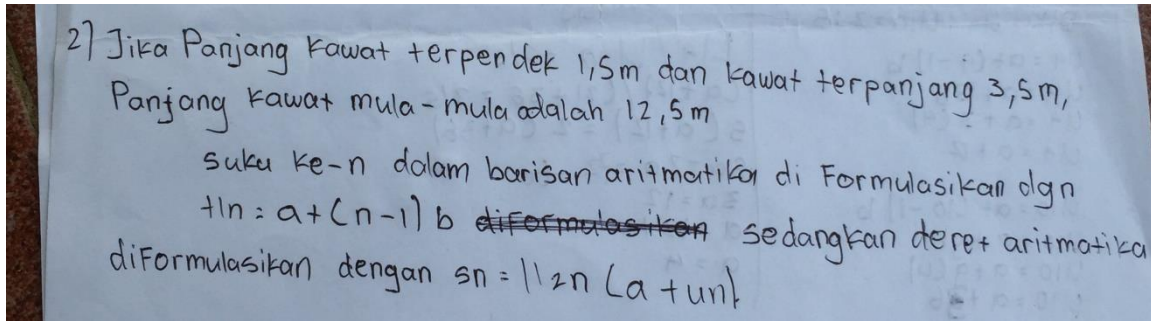 2) Jika Panjang Kawat terpendek 1,5m dan kawat terpanjang 3,5m,
Panjang kawat mula-mula adalah 12,5m
suku ke-n dalam barisan aritmatika di Formulasikan dgn
Un = a + (n-1) b diformulasikan sedangkan deret aritmatika
diFormulasikan dengan sn = 1/2n (a + un)